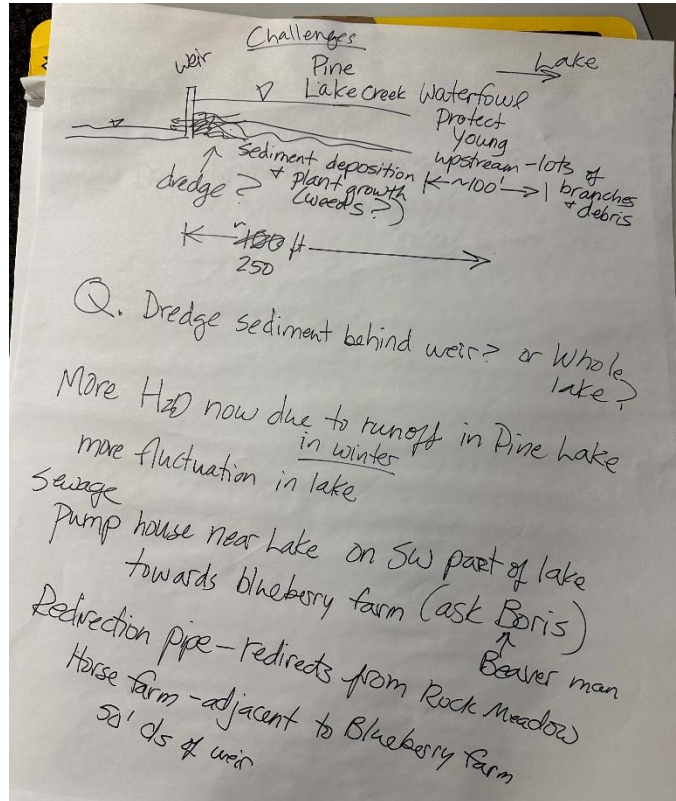 Challenges
weir
Pine
Lake Creek
Lake
Waterfowl
Protect
young
upstream - lots of
branches
+ debris
|← ~100' →|
dredge?
sediment deposition
+ plant growth
(weeds?)
~100 ft
250
Q. Dredge sediment behind weir? or Whole
lake?
More H2O now due to runoff in Pine Lake
in winter
more fluctuation in lake
Sewage
Pump house near Lake on SW part of lake
towards blueberry farm (ask Boris)
Beaver man
Redirection pipe - redirects from Rock Meadow
Horse farm - adjacent to Blueberry farm
50' ds of weir